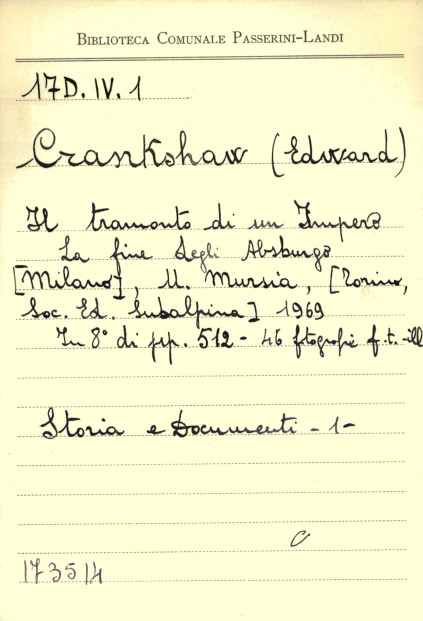 BIBLIOTECA COMUNALE PASSERINI-LANDI
17D.IV.1
Crankshaw (Edward)
Il tramonto di un Impero
La fine degli Absburgo
[Milano], U. Mursia, [Torino,
Soc. Ed. Subalpina] 1969
In 8° di pp. 512 - 46 fotografie f.t.-ill
Storia e Documenti - 1 -
C
173514